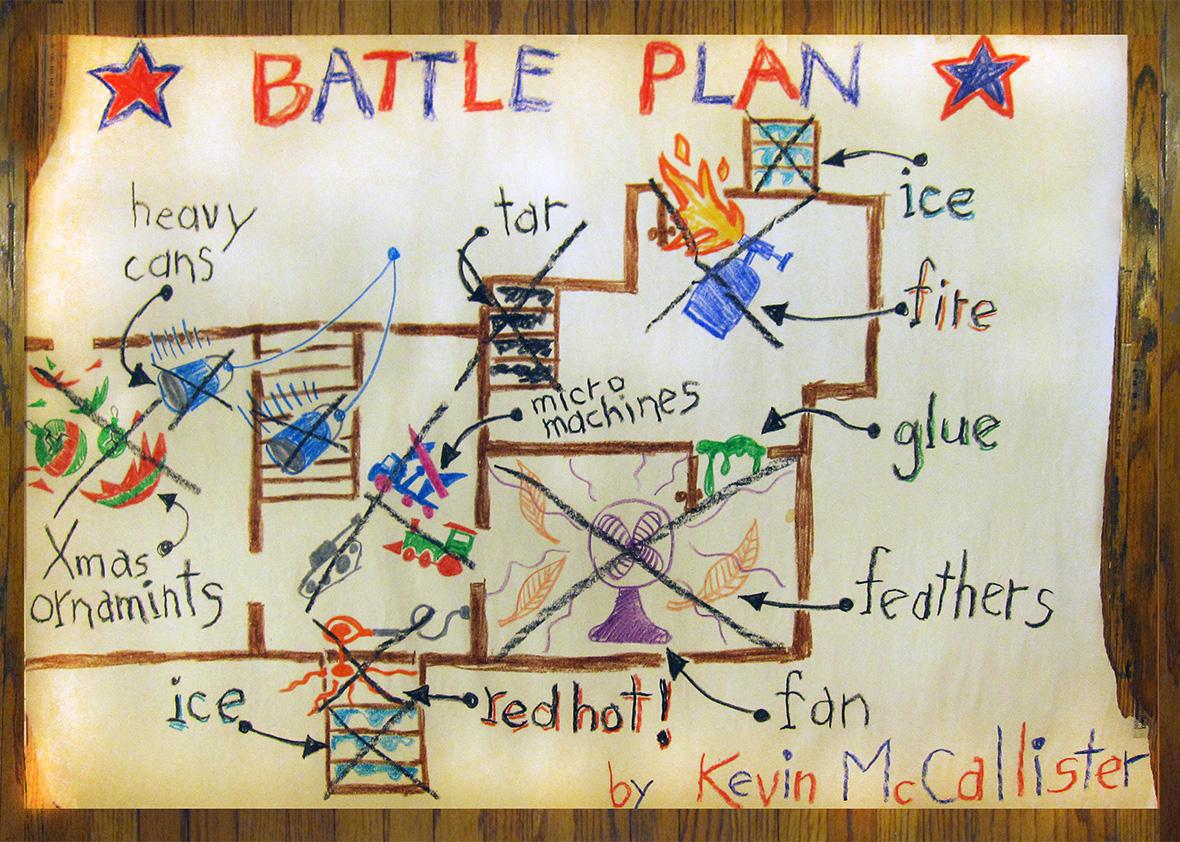 BATTLE PLAN
ice
heavy
cans
tar
fire
micro
machines
glue
Xmas
ornamints
feathers
ice
red hot!
fan
by Kevin McCallister